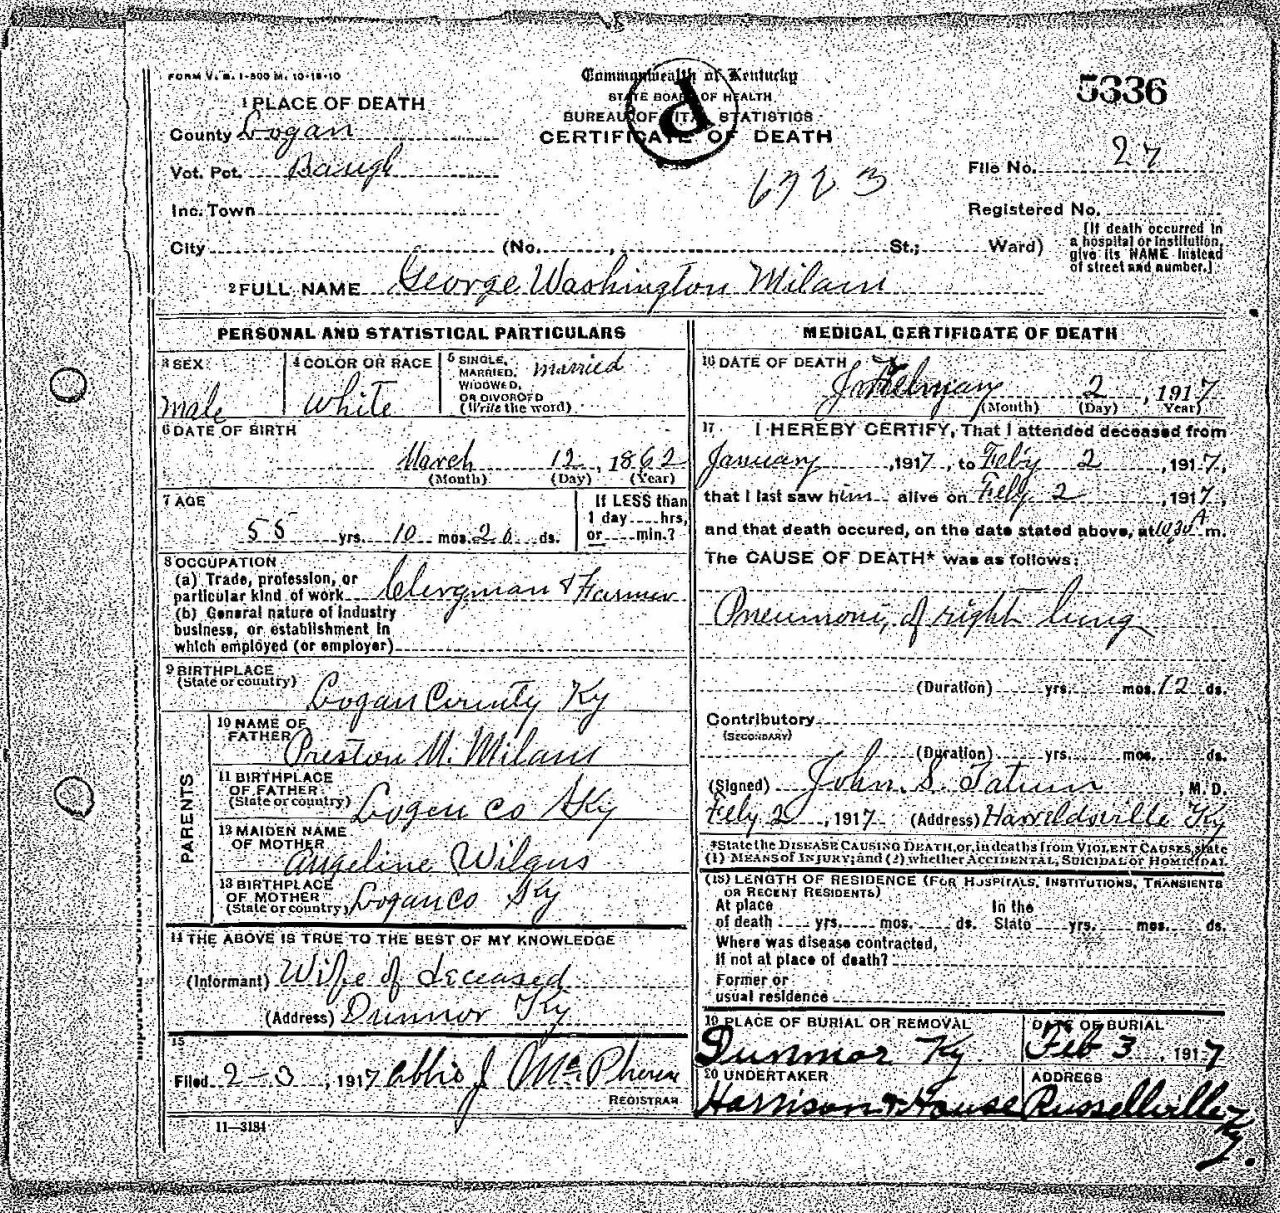 FORM V. S. 1-500 M. 10-18-10
Commonwealth of Kentucky
STATE BOARD OF HEALTH
BUREAU OF VITAL STATISTICS
CERTIFICATE OF DEATH
P
5336
1 PLACE OF DEATH
County Logan
Vot. Pct. Baugh
Inc. Town
City (No. , St.; Ward)
6923
File No. 27
Registered No.
[If death occurred in
a hospital or institution,
give its NAME instead
of street and number.]
2 FULL NAME George Washington Milam
PERSONAL AND STATISTICAL PARTICULARS
3 SEX
male
4 COLOR OR RACE
White
5 SINGLE,
MARRIED,
WIDOWED,
OR DIVORCED
(Write the word)
married
6 DATE OF BIRTH
March 12, 1862
(Month) (Day) (Year)
7 AGE
55 yrs. 10 mos. 20 ds.
If LESS than
1 day hrs,
or min.?
8 OCCUPATION
(a) Trade, profession, or
particular kind of work Clergman & Farmer
(b) General nature of industry
business, or establishment in
which employed (or employer)
9 BIRTHPLACE
(State or country)
Logan County Ky
PARENTS
10 NAME OF
FATHER
Preston M. Milam
11 BIRTHPLACE
OF FATHER
(State or country) Logan Co Ky
12 MAIDEN NAME
OF MOTHER
Angeline Wilgus
13 BIRTHPLACE
OF MOTHER
(State or country) Logan Co Ky
14 THE ABOVE IS TRUE TO THE BEST OF MY KNOWLEDGE
(Informant) Wife of deceased
(Address) Dunmor Ky
15
Filed 2-3, 1917 J McPherson
REGISTRAR
11-3184
MEDICAL CERTIFICATE OF DEATH
16 DATE OF DEATH
2, 1917
(Month) (Day) (Year)
17 I HEREBY CERTIFY, That I attended deceased from
January, 1917, to Feby 2, 1917,
that I last saw him alive on Feby 2, 1917,
and that death occured, on the date stated above, at 10 30 A m.
The CAUSE OF DEATH* was as follows:
Pneumoni, of right lung
(Duration) yrs. mos. 12 ds.
Contributory
(SECONDARY)
(Duration) yrs. mos. ds.
(Signed) John. S. Tatum, M. D.
Feby 2, 1917 (Address) Ky
*State the DISEASE CAUSING DEATH, or, in deaths from VIOLENT CAUSES, state
(1) MEANS of INJURY; and (2) whether ACCIDENTAL, SUICIDAL or HOMICIDAL
(18) LENGTH OF RESIDENCE (FOR HOSPITALS, INSTITUTIONS, TRANSIENTS
OR RECENT RESIDENTS)
At place In the
of death yrs. mos. ds. State yrs. mos. ds.
Where was disease contracted,
If not at place of death?
Former or
usual residence
19 PLACE OF BURIAL OR REMOVAL
Dunmor Ky
DATE OF BURIAL
Feb 3, 1917
20 UNDERTAKER
Harrison & House
ADDRESS
Russellville Ky.